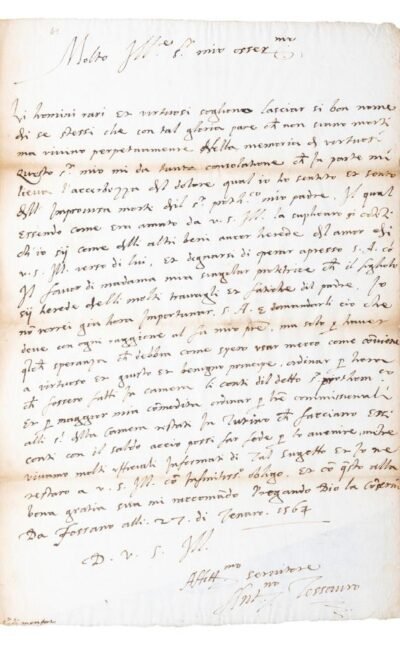 Molto Ill.e s.r mio osser.mo
Li homini rari et virtuosi sogliono lasciar si bon nome
di se stessi che con tal gloria pare ch non siano morti
ma vivano perpetuamente nella memoria di virtuosi
Questo s.r mio mi da tanta consolatione ch in parte mi
leva l'accerbezza del dolore qual io ho sentito et sento
dell improvisa morte del s.r mio padre. Il qual
essendo come era amato da v. s. Ill. la suplicarò
ch io sij come dell altri beni ancor herede del amor di
v. s. Ill. verso di lui, et degnarsi di operar apresso S. A. co
Il favor di madama mia singular ch il figliolo
sij herede delli molti travagli et fatiche del padre. Io
nō vorrei già hora importunar S. A. E domandarli ciò che
deve con ogni raggione al fu mio pre. ma solo p haver
speranza ch debbia come spero usar meco come
a virtuoso et giusto et benigno principe, ordinar p hora
ch fossero fatti in camera li conti del detto s.r
Et p maggior mia comodità ordinar p tre commissionali
alli s.ri della camera restati in Turino ch facciano Essi
conti con il saldo acciò possi far fede p lo avenire, mētre
vivano molti officiali informati di tal sugetto et Io ne
restarò a v. s. Ill. cō infinitiss.o obligo. Et cō q̄sto alla
bona gratia sua mi racomādo Pregando Dio la
Da Fossano alli. 27. di Genaro. 1564
D. v. s. Ill.
Affitt.mo servitore
Ant.no Tessauro